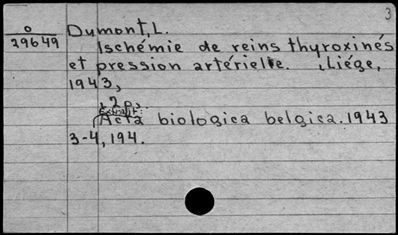 3
0
29649
Dumont, L.
Ischémie de reins thyroxinés
et pression artérielle. , Liége,
1943,
, 2 p,.
Extrait:
(Acta biologica belgica. 1943
3-4, 194.